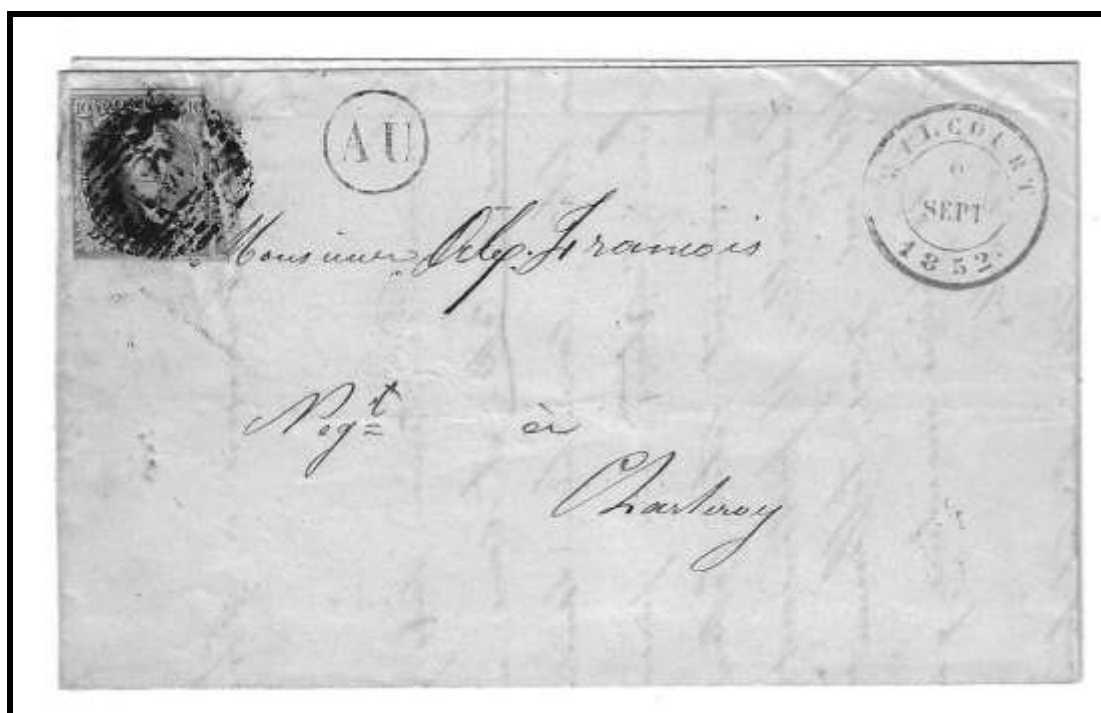 10 10
AU
WALCOURT
SEPT
1852.
Monsieur François
Negt à
Charleroy